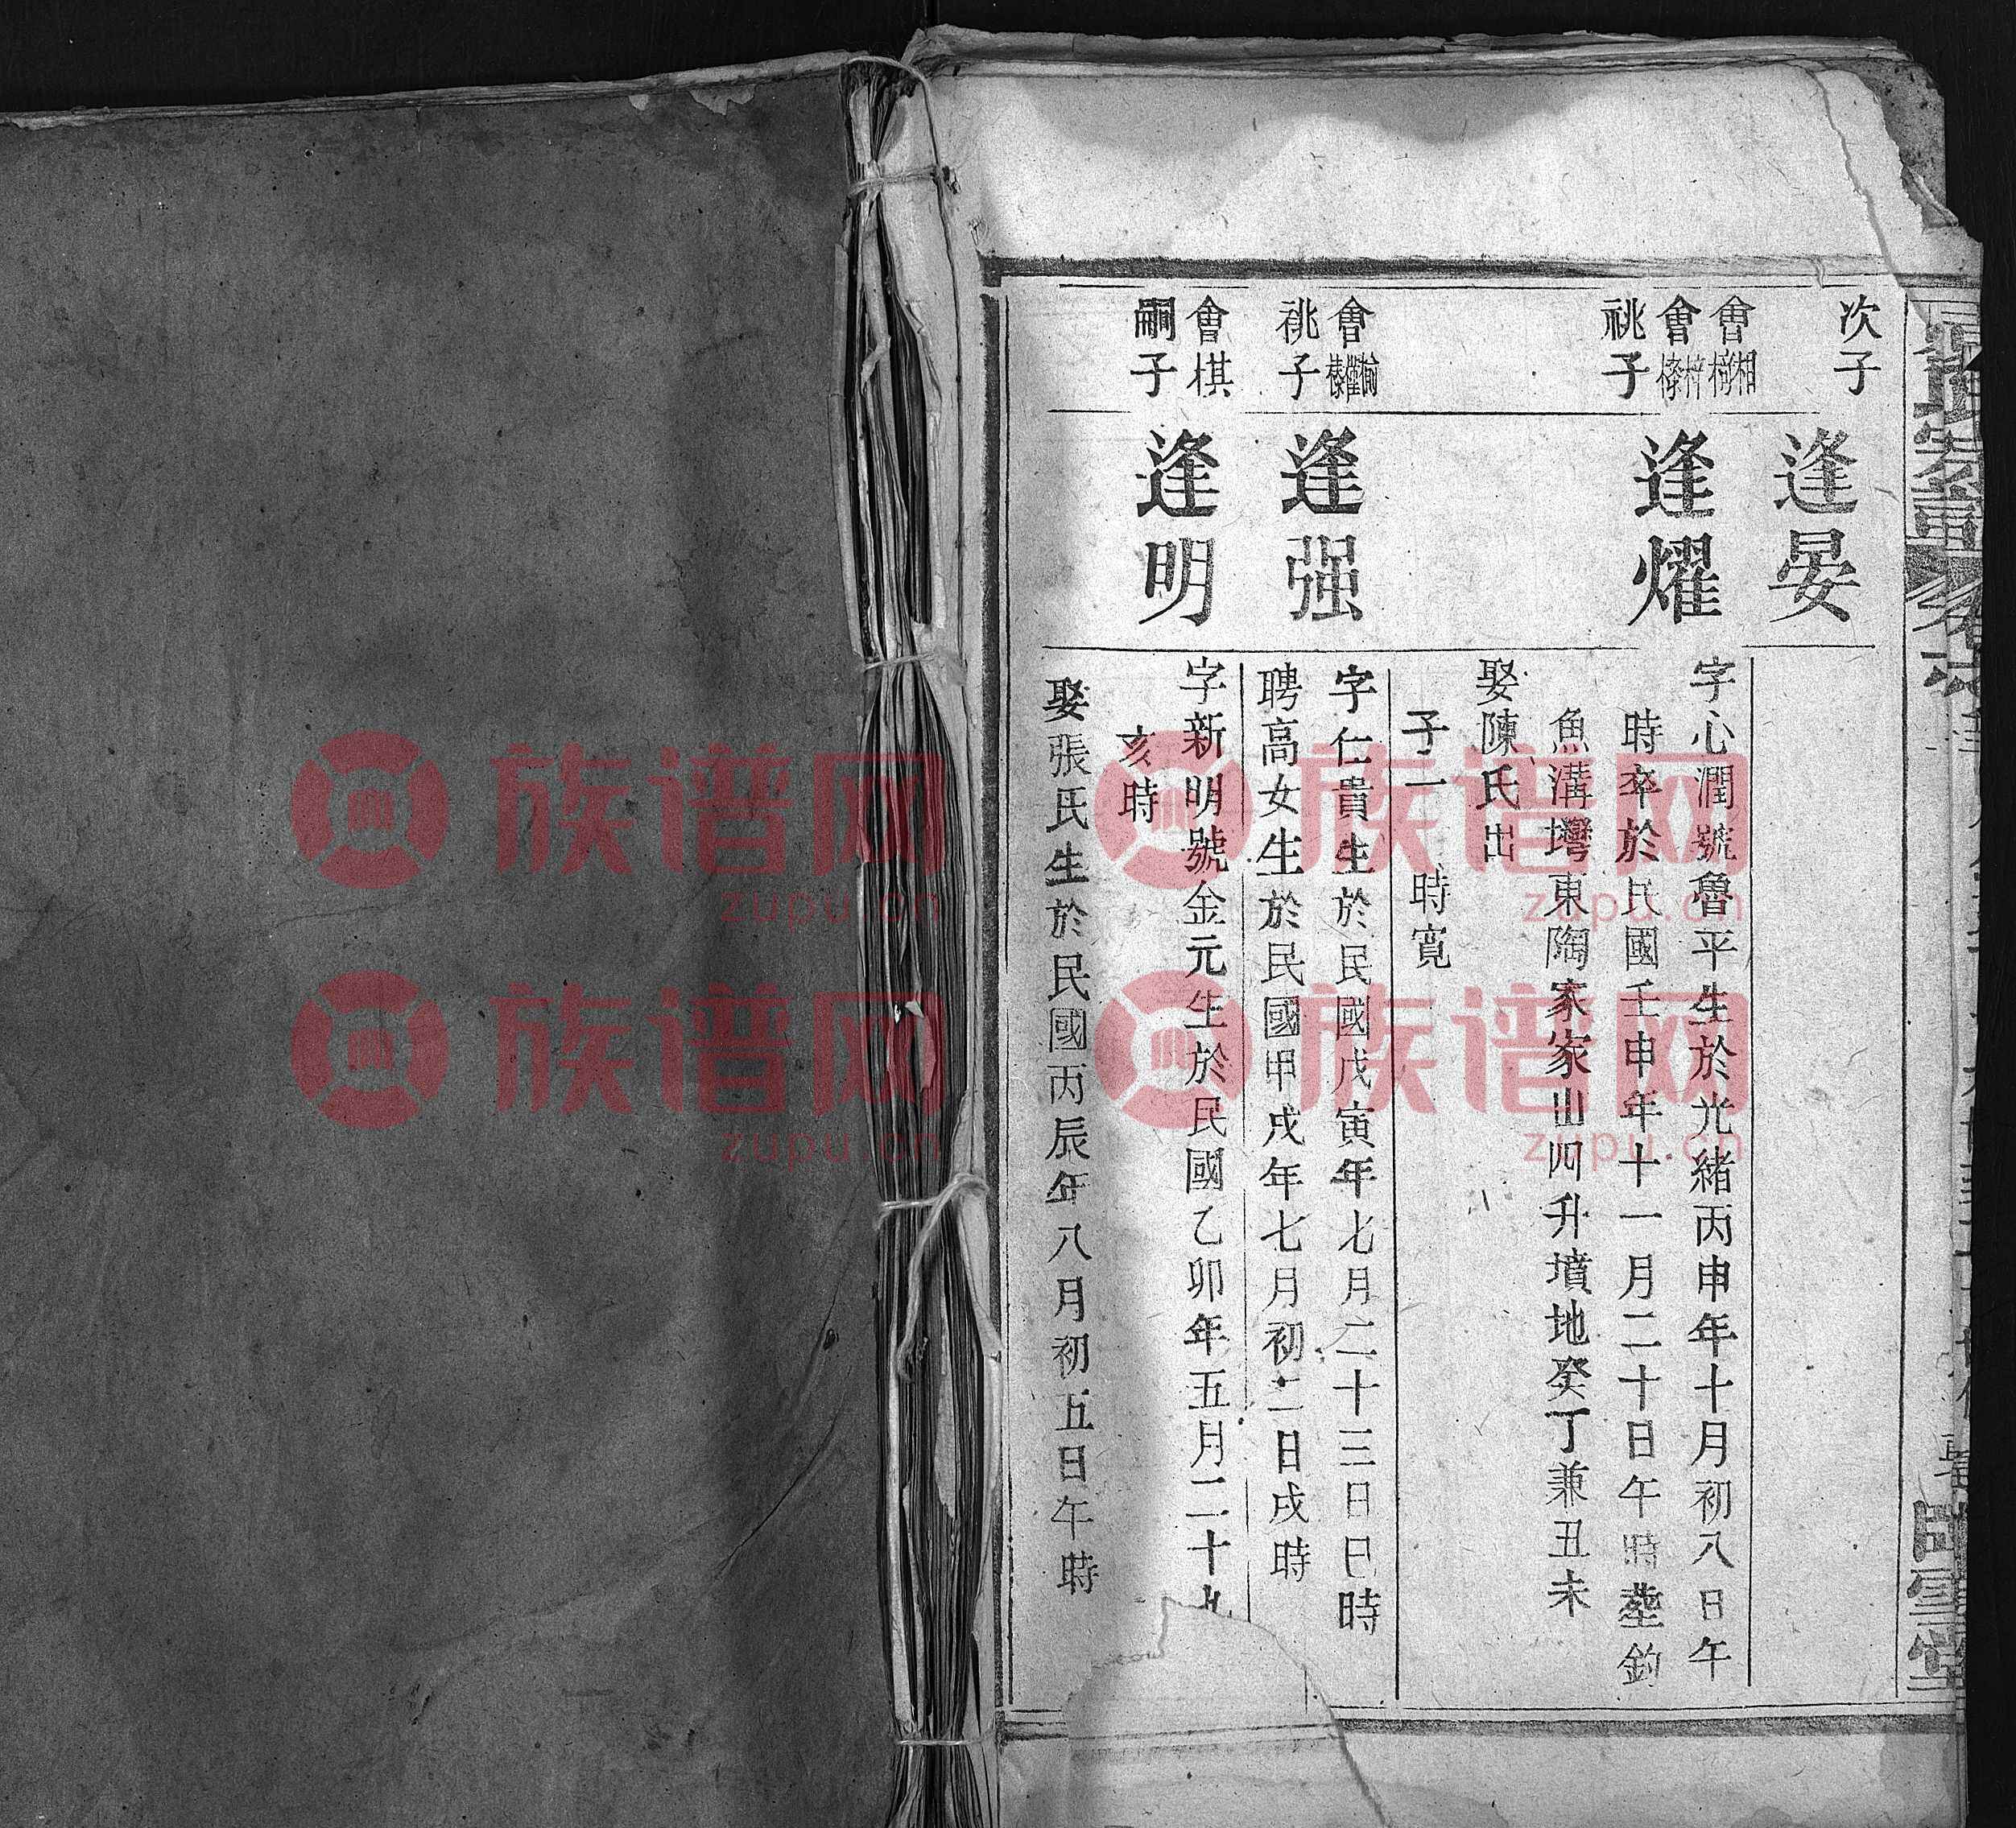 次子
逢晏
會相
會梓
祧子
逢燿
字心潤號魯平生於光緒丙申年十月初八日午
時卒於民國壬申年十一月二十日午時塟釣
魚溝塆東陶家家山四升墳地癸丁兼丑未
娶陳氏出
子一 時寬
會
祧子
逢强
字仁貴生於民國戊寅年七月二十三日巳時
聘高女生於民國甲戌年七月初二日戌時
會棋
嗣子
逢明
字新明號金元生於民國乙卯年五月二十九
亥時
娶張氏生於民國丙辰年八月初五日午時
族谱网
zupu.cn
族谱网
zupu.cn
族谱网
zupu.cn
族谱网
zupu.cn